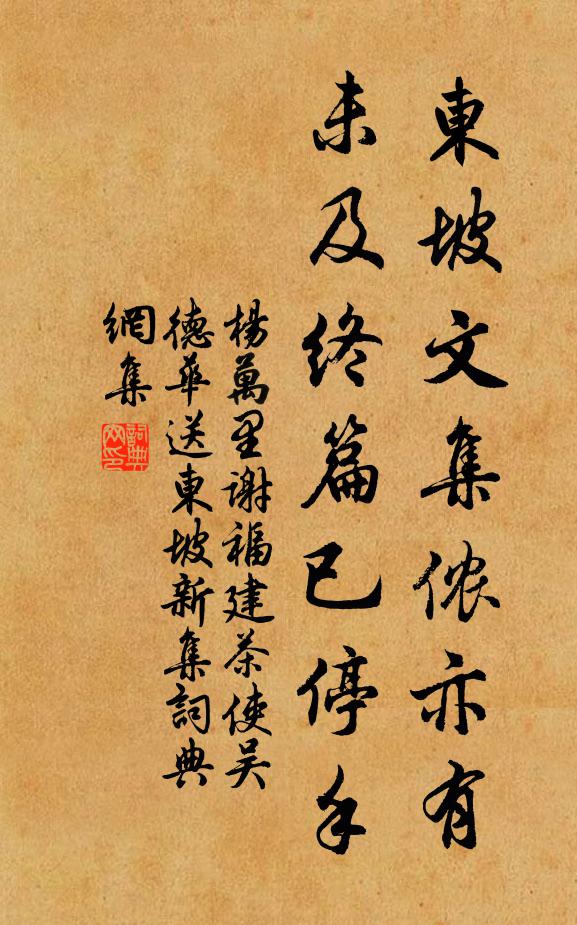 東坡文集侬亦有
未及終篇已停手
楊萬里謝福建茶使吴
德華送東坡新集詞典
網集
詞典
网印